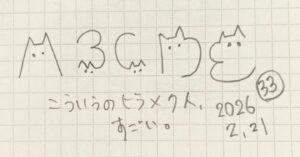 ABCDE
33
こういうのヒラメク人、
すごい。
2026
2,21